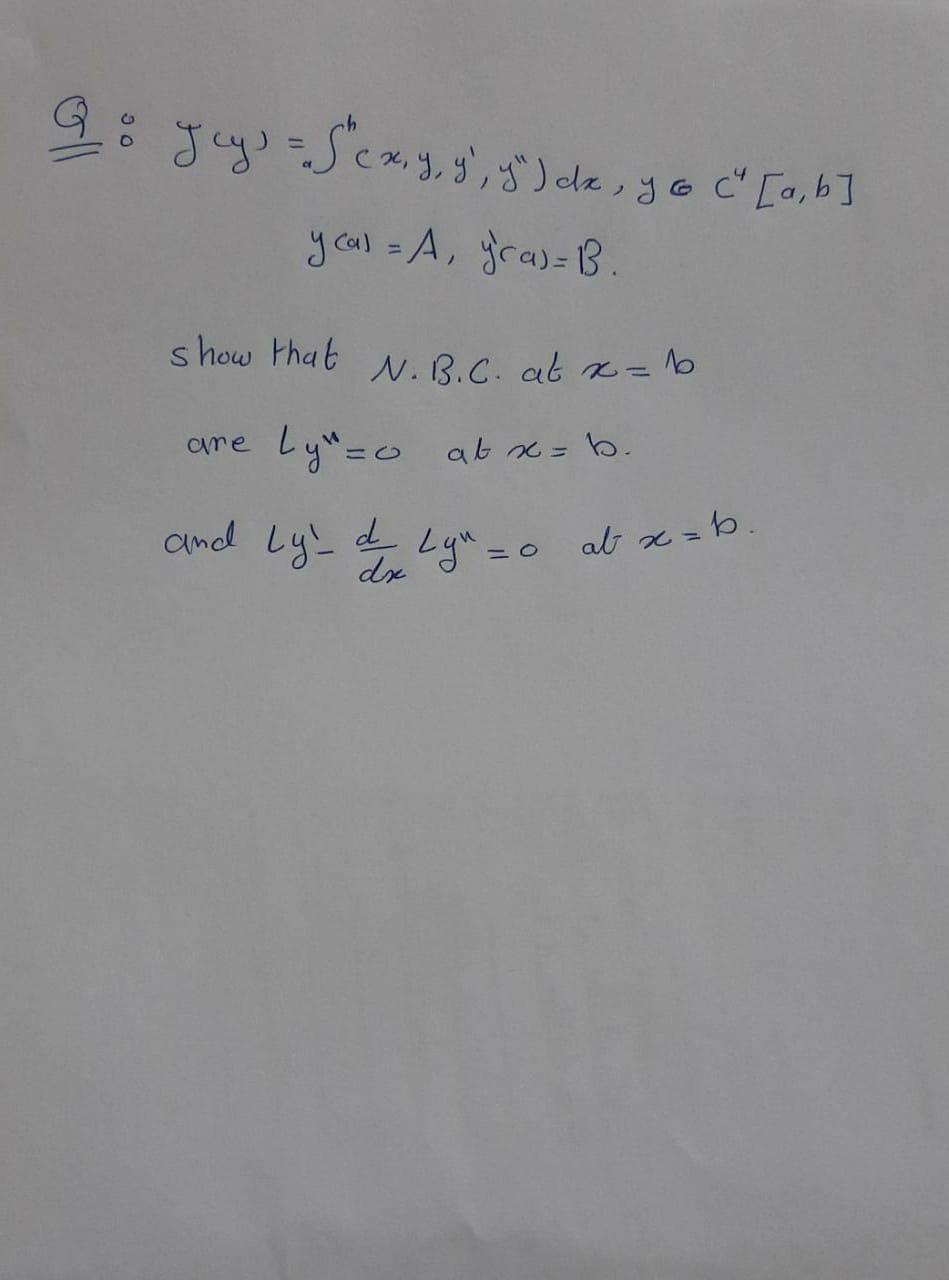 Q : J(y) = ₐ∫ᵇ (x, y, y', y'') dx, y ∈ C⁴ [a, b]
y(a) = A, y'(a) = B.
show that N.B.C. at x = b
are Ly'' = 0 at x = b.
and Ly' - d/dx Ly'' = 0 at x = b.